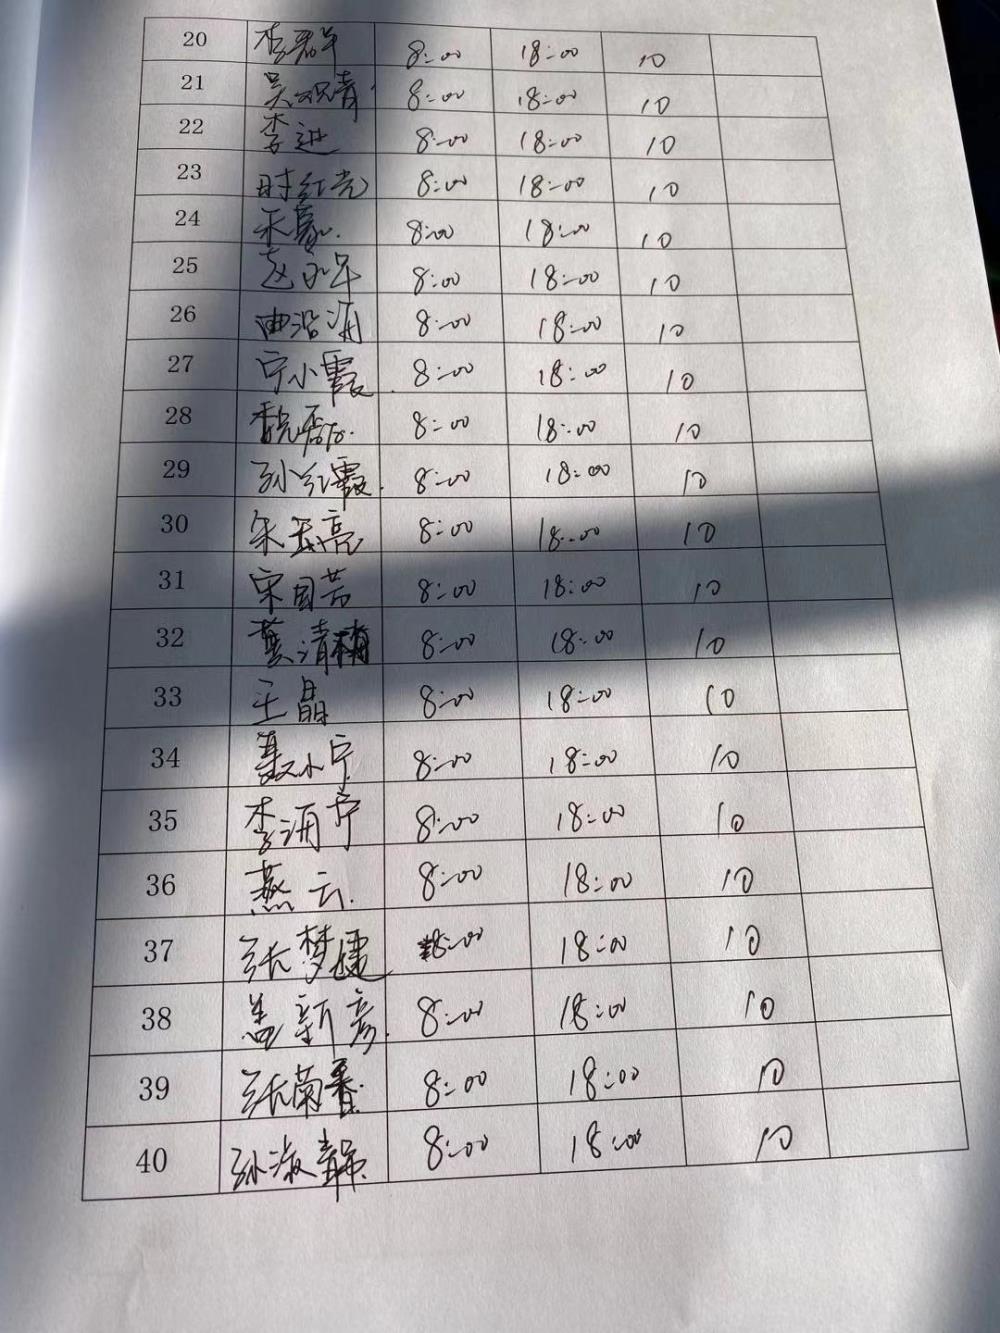 20 8:00 18:00 10
21 吴观青 8:00 18:00 10
22 李进 8:00 18:00 10
23 时红亮 8:00 18:00 10
24 8:00 18:00 10
25 赵永年 8:00 18:00 10
26 曲浩涌 8:00 18:00 10
27 宁小霞 8:00 18:00 10
28 8:00 18:00 10
29 孙红霞 8:00 18:00 10
30 朱玉亮 8:00 18:00 10
31 宋国芳 8:00 18:00 10
32 8:00 18:00 10
33 王晶 8:00 18:00 10
34 聂小宁 8:00 18:00 10
35 李涌宁 8:00 18:00 10
36 燕云 8:00 18:00 10
37 张梦婕 8:00 18:00 10
38 盖新彦 8:00 18:00 10
39 张菊香 8:00 18:00 10
40 孙淑静 8:00 18:00 10